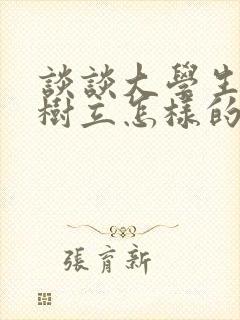 談談大學生
樹立怎樣的
張育新